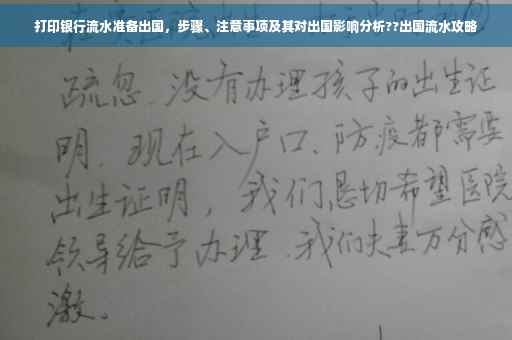 打印银行流水准备出国，步骤、注意事项及其对出国影响分析??出国流水攻略
疏忽、没有办理孩子的出生证
明、现在入户口、防疫都需要
出生证明，我们恳切希望医院
领导给予办理、我们夫妻万分感
激。